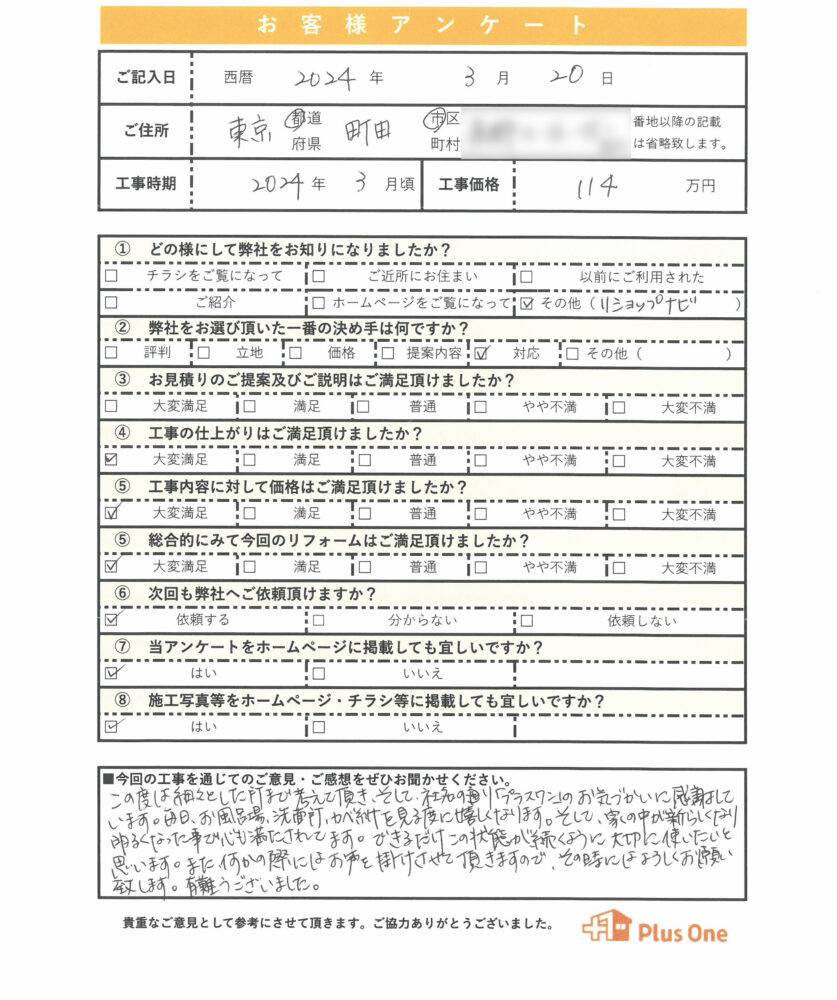 お客様アンケート
ご記入日 西暦 2024 年 3 月 20 日
ご住所 東京 都道府県 町田 市区町村 番地以降の記載は省略致します。
工事時期 2024 年 3 月頃 工事価格 114 万円
① どの様にして弊社をお知りになりましたか？
☐ チラシをご覧になって ☐ ご近所にお住まい ☐ 以前にご利用された
☐ ご紹介 ☐ ホームページをご覧になって ☑ その他（リショップナビ）
② 弊社をお選び頂いた一番の決め手は何ですか？
☐ 評判 ☐ 立地 ☐ 価格 ☐ 提案内容 ☑ 対応 ☐ その他（ ）
③ お見積りのご提案及びご説明はご満足頂けましたか？
☐ 大変満足 ☐ 満足 ☐ 普通 ☐ やや不満 ☐ 大変不満
④ 工事の仕上がりはご満足頂けましたか？
☑ 大変満足 ☐ 満足 ☐ 普通 ☐ やや不満 ☐ 大変不満
⑤ 工事内容に対して価格はご満足頂けましたか？
☑ 大変満足 ☐ 満足 ☐ 普通 ☐ やや不満 ☐ 大変不満
⑤ 総合的にみて今回のリフォームはご満足頂けましたか？
☑ 大変満足 ☐ 満足 ☐ 普通 ☐ やや不満 ☐ 大変不満
⑥ 次回も弊社へご依頼頂けますか？
☑ 依頼する ☐ 分からない ☐ 依頼しない
⑦ 当アンケートをホームページに掲載しても宜しいですか？
☑ はい ☐ いいえ
⑧ 施工写真等をホームページ・チラシ等に掲載しても宜しいですか？
☑ はい ☐ いいえ
■今回の工事を通じてのご意見・ご感想をぜひお聞かせください。
この度は細々とした所まで考えて頂き、そして、社名の通り「プラスワン」のお気づかいに感謝して
います。毎日、お風呂場、洗面所、かべ紙を見る度に嬉しくなります。そして、家の中が新らしくなり
明るくなった事で心も満たされてます。できるだけこの状態が続くように大切に使いたいと
思います。また何かの際にはお声を掛けさせて頂きますので、その時にはよろしくお願い
致します。有難うございました。
貴重なご意見として参考にさせて頂きます。ご協力ありがとうございました。
Plus One